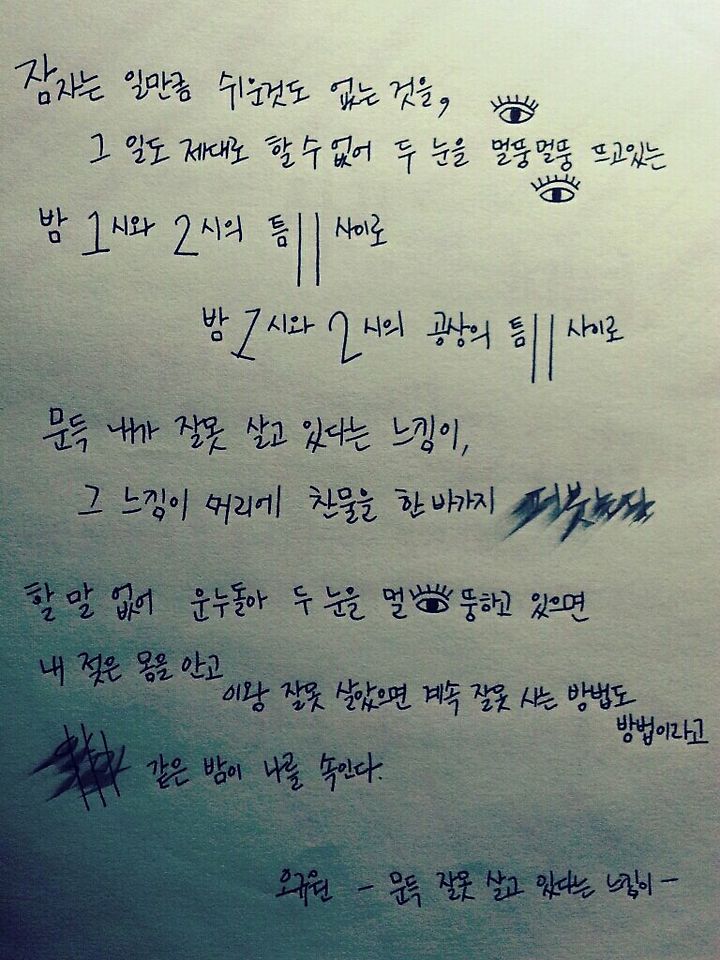 잠자는 일만큼 쉬운것도 없는 것을,
그 일도 제대로 할 수 없어 두 눈을 멀뚱멀뚱 뜨고있는
밤 1시와 2시의 틈 사이로
밤 1시와 2시의 공상의 틈 사이로
문득 내가 잘못 살고 있다는 느낌이,
그 느낌이 머리에 찬물을 한 바가지 퍼붓는다
할 말 없어 운누돌아 두 눈을 멀뚱하고 있으면
내 젖은 몸을 안고
이왕 잘못 살았으면 계속 잘못 사는 방법도
방법이라고
같은 밤이 나를 속인다.
오규원 - 문득 잘못 살고 있다는 느낌이 -